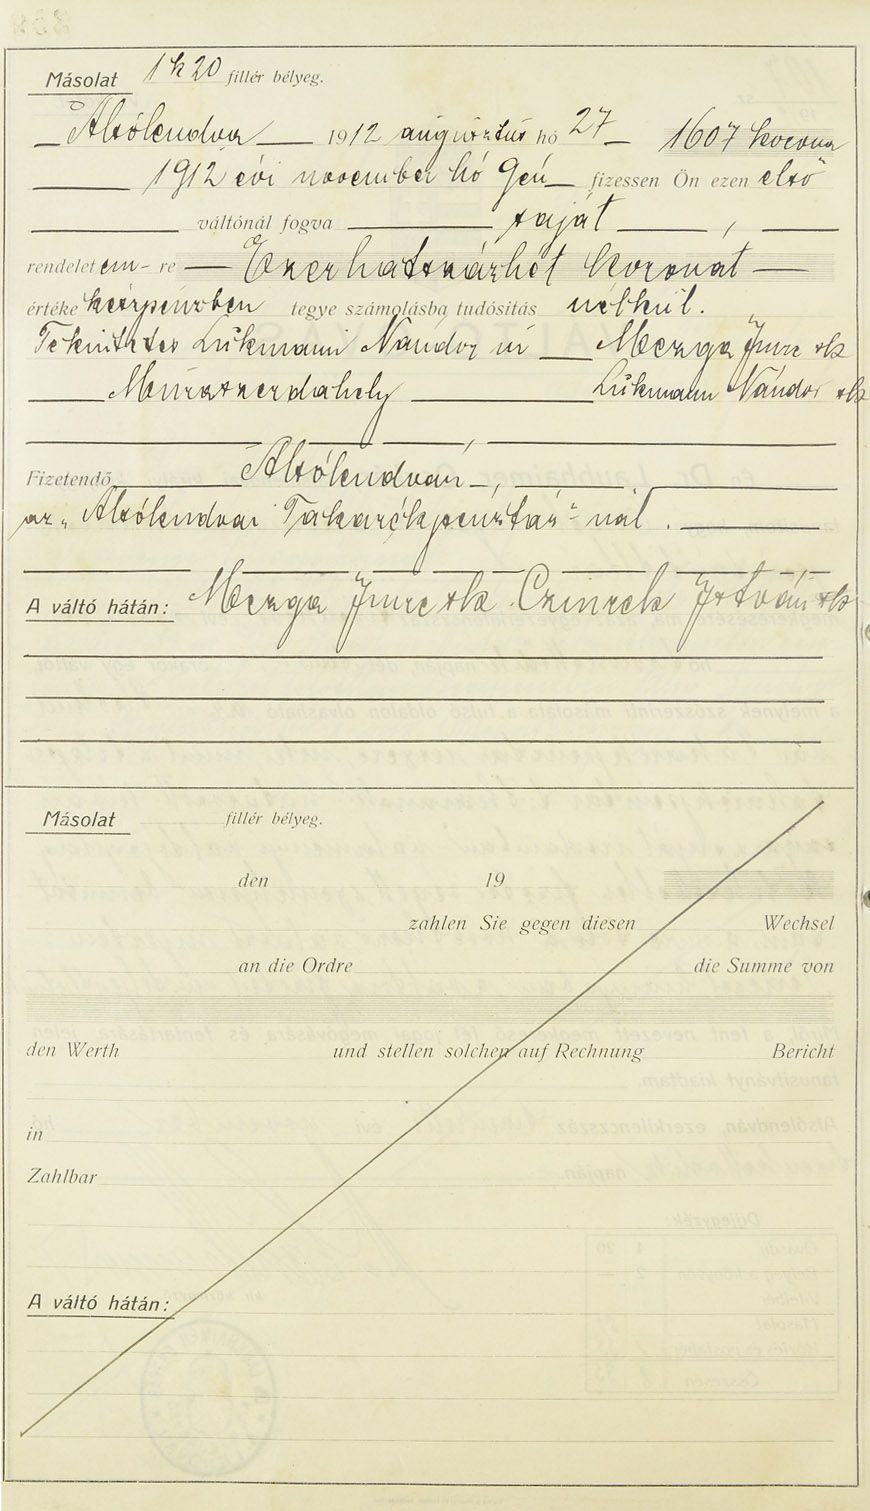 Másolat 1 k 20 fillér bélyeg.
Alsólendva 1912 augusztus hó 27 1607 korona
1912 évi november hó 9én fizessen Ön ezen első
váltónál fogva saját ,
rendeletem-re Ezerhatszázhét koronát
értéke készpénzben tegye számolásba tudósitás nélkül.
Tekintetes Lukmann Nándor úr Mezga Imre sk
Muraszerdahely Lukmann Nándor sk
Fizetendő Alsólendván,
az „Alsólendvai Takarékpénztár"-nál.
A váltó hátán: Mezga Imre sk Czinrek István sk
Másolat fillér bélyeg.
den 19
zahlen Sie gegen diesen Wechsel
an die Ordre die Summe von
den Werth und stellen solchen auf Rechnung Bericht
in
Zahlbar
A váltó hátán: